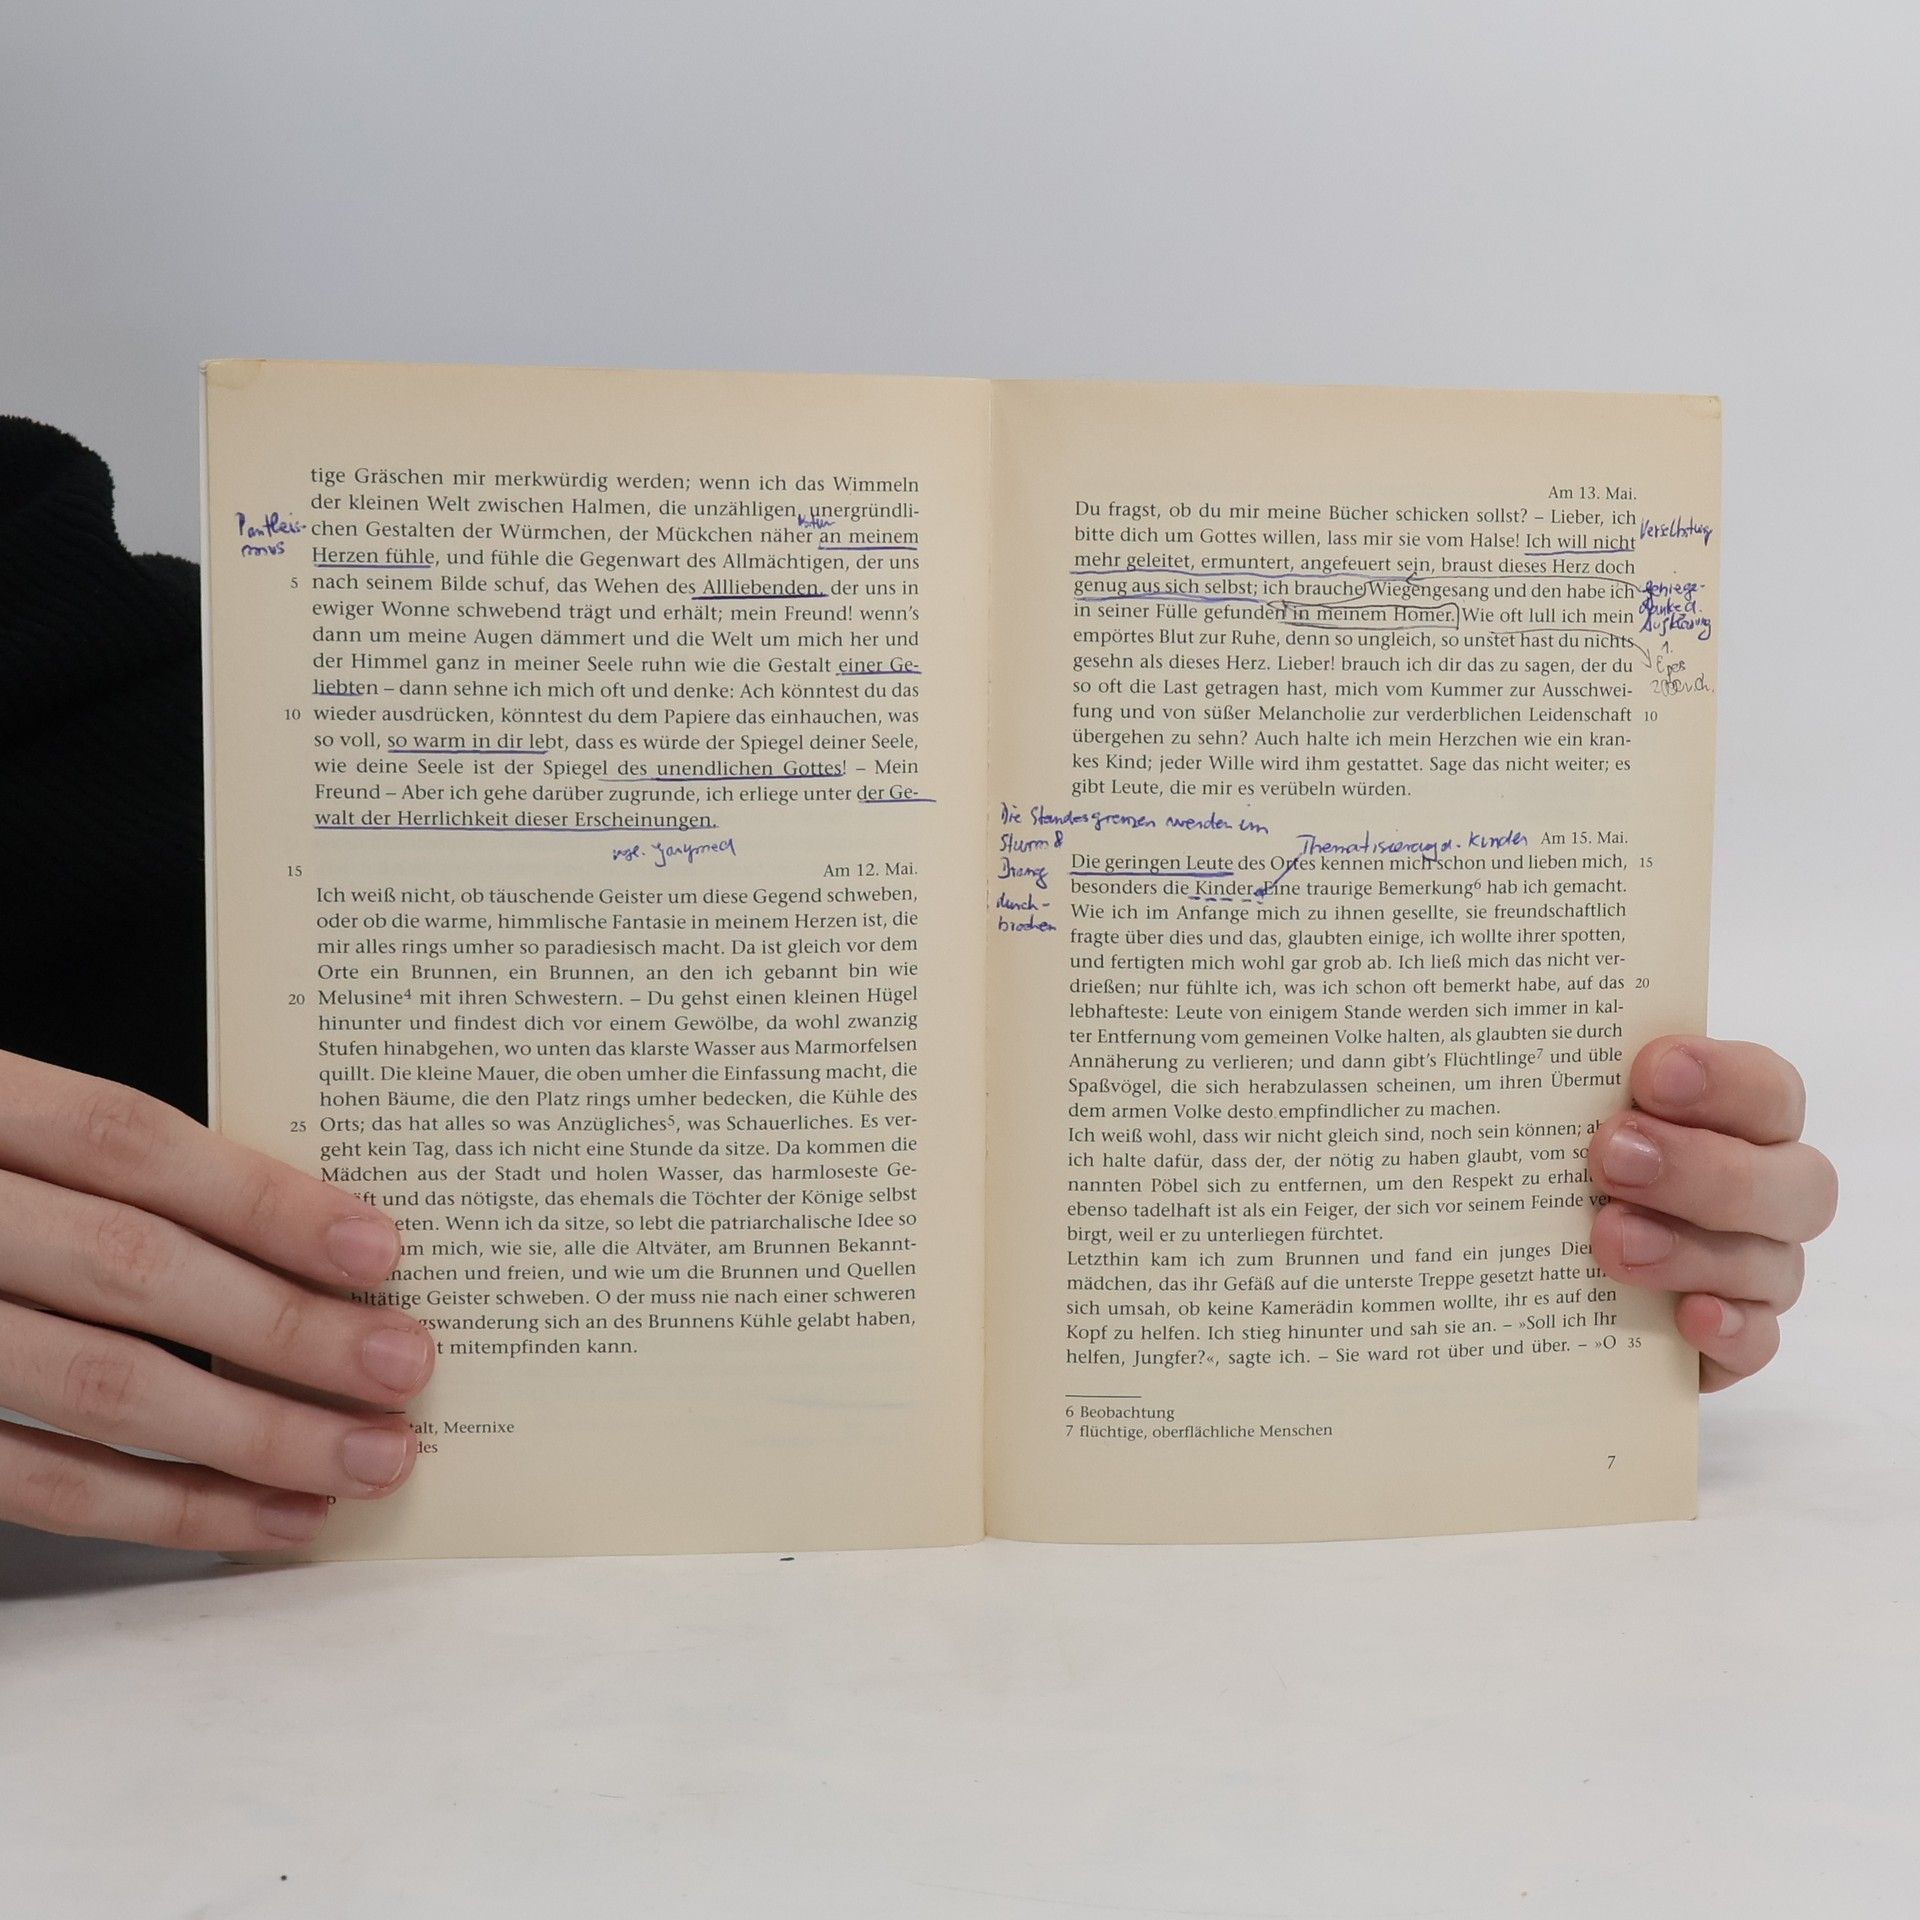 tige Gräschen mir merkwürdig werden; wenn ich das Wimmeln
der kleinen Welt zwischen Halmen, die unzähligen, unergründli-
Pantheis-
mus
chen Gestalten der Würmchen, der Mückchen näher an meinem
Herzen fühle, und fühle die Gegenwart des Allmächtigen, der uns
5 nach seinem Bilde schuf, das Wehen des Allliebenden, der uns in
ewiger Wonne schwebend trägt und erhält; mein Freund! wenn's
dann um meine Augen dämmert und die Welt um mich her und
der Himmel ganz in meiner Seele ruhn wie die Gestalt einer Ge-
liebten – dann sehne ich mich oft und denke: Ach könntest du das
10 wieder ausdrücken, könntest du dem Papiere das einhauchen, was
so voll, so warm in dir lebt, dass es würde der Spiegel deiner Seele,
wie deine Seele ist der Spiegel des unendlichen Gottes! – Mein
Freund – Aber ich gehe darüber zugrunde, ich erliege unter der Ge-
walt der Herrlichkeit dieser Erscheinungen.
Ganymed
15 Am 12. Mai.
Ich weiß nicht, ob täuschende Geister um diese Gegend schweben,
oder ob die warme, himmlische Fantasie in meinem Herzen ist, die
mir alles rings umher so paradiesisch macht. Da ist gleich vor dem
Orte ein Brunnen, ein Brunnen, an den ich gebannt bin wie
20 Melusine⁴ mit ihren Schwestern. – Du gehst einen kleinen Hügel
hinunter und findest dich vor einem Gewölbe, da wohl zwanzig
Stufen hinabgehen, wo unten das klarste Wasser aus Marmorfelsen
quillt. Die kleine Mauer, die oben umher die Einfassung macht, die
hohen Bäume, die den Platz rings umher bedecken, die Kühle des
25 Orts; das hat alles so was Anzügliches⁵, was Schauerliches. Es ver-
geht kein Tag, dass ich nicht eine Stunde da sitze. Da kommen die
Mädchen aus der Stadt und holen Wasser, das harmloseste Ge-
ft und das nötigste, das ehemals die Töchter der Könige selbst
eten. Wenn ich da sitze, so lebt die patriarchalische Idee so
um mich, wie sie, alle die Altväter, am Brunnen Bekannt-
machen und freien, und wie um die Brunnen und Quellen
hltätige Geister schweben. O der muss nie nach einer schweren
gswanderung sich an des Brunnens Kühle gelabt haben,
t mitempfinden kann.
talt, Meernixe
des
6
Am 13. Mai.
Du fragst, ob du mir meine Bücher schicken sollst? – Lieber, ich
bitte dich um Gottes willen, lass mir sie vom Halse! Ich will nicht
mehr geleitet, ermuntert, angefeuert sein, braust dieses Herz doch
genug aus sich selbst; ich brauche Wiegengesang und den habe ich
in seiner Fülle gefunden in meinem Homer. Wie oft lull ich mein
empörtes Blut zur Ruhe, denn so ungleich, so unstet hast du nichts
gesehn als dieses Herz. Lieber! brauch ich dir das zu sagen, der du
so oft die Last getragen hast, mich vom Kummer zur Ausschwei-
fung und von süßer Melancholie zur verderblichen Leidenschaft 10
übergehen zu sehn? Auch halte ich mein Herzchen wie ein kran-
kes Kind; jeder Wille wird ihm gestattet. Sage das nicht weiter; es
gibt Leute, die mir es verübeln würden.
Die Standesgrenzen werden im
Sturm &
Drang
durch-
brochen
Thematisierung d. Kinder
Am 15. Mai.
Die geringen Leute des Ortes kennen mich schon und lieben mich, 15
besonders die Kinder. Eine traurige Bemerkung⁶ hab ich gemacht.
Wie ich im Anfange mich zu ihnen gesellte, sie freundschaftlich
fragte über dies und das, glaubten einige, ich wollte ihrer spotten,
und fertigten mich wohl gar grob ab. Ich ließ mich das nicht ver-
drießen; nur fühlte ich, was ich schon oft bemerkt habe, auf das 20
lebhafteste: Leute von einigem Stande werden sich immer in kal-
ter Entfernung vom gemeinen Volke halten, als glaubten sie durch
Annäherung zu verlieren; und dann gibt's Flüchtlinge⁷ und üble
Spaßvögel, die sich herabzulassen scheinen, um ihren Übermut
dem armen Volke desto empfindlicher zu machen.
Ich weiß wohl, dass wir nicht gleich sind, noch sein können; ab
ich halte dafür, dass der, der nötig zu haben glaubt, vom so
nannten Pöbel sich zu entfernen, um den Respekt zu erhal
ebenso tadelhaft ist als ein Feiger, der sich vor seinem Feinde ver
birgt, weil er zu unterliegen fürchtet.
Letzthin kam ich zum Brunnen und fand ein junges Dien
mädchen, das ihr Gefäß auf die unterste Treppe gesetzt hatte un
sich umsah, ob keine Kamerädin kommen wollte, ihr es auf den
Kopf zu helfen. Ich stieg hinunter und sah sie an. – »Soll ich Ihr
helfen, Jungfer?«, sagte ich. – Sie ward rot über und über. – »O 35
6 Beobachtung
7 flüchtige, oberflächliche Menschen
7